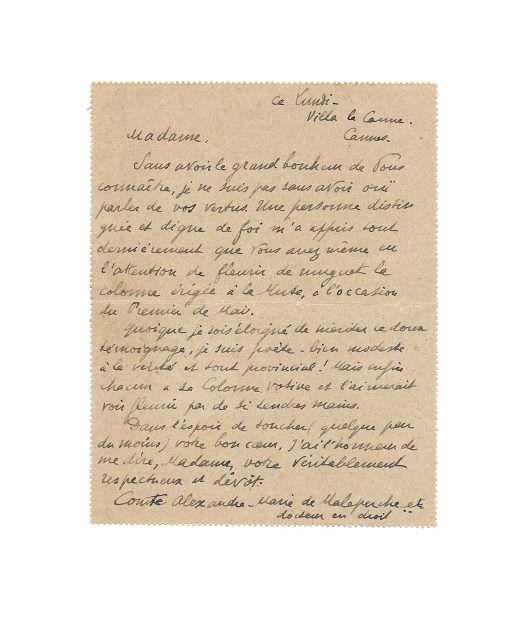 ce Lundi -
Villa la Canne.
Cannes.
Madame.
Sans avoir le grand bonheur de Vous
connaître, je ne suis pas sans avoir ouï
parler de vos vertus. Une personne distin
guée et digne de foi m'a appris tout
dernièrement que Vous avez même eu
l'attention de fleurir de muguet la
colonne érigée à la Muse, à l'occasion
du Premier de Mai.
Quoique je sois éloigné de mériter ce doux
témoignage, je suis poète - bien modeste
à la vérité et tout provincial! Mais enfin
chacun a sa Colonne votive et l'aimerait
voir fleurir par de si tendres mains.
Dans l'espoir de toucher (quelque peu
du moins) votre bon cœur, J'ai l'honneur de
me dire, Madame, votre Véritablement
respectueux et dévôt.
Comte Alexandre-Marie de etc
docteur en droit